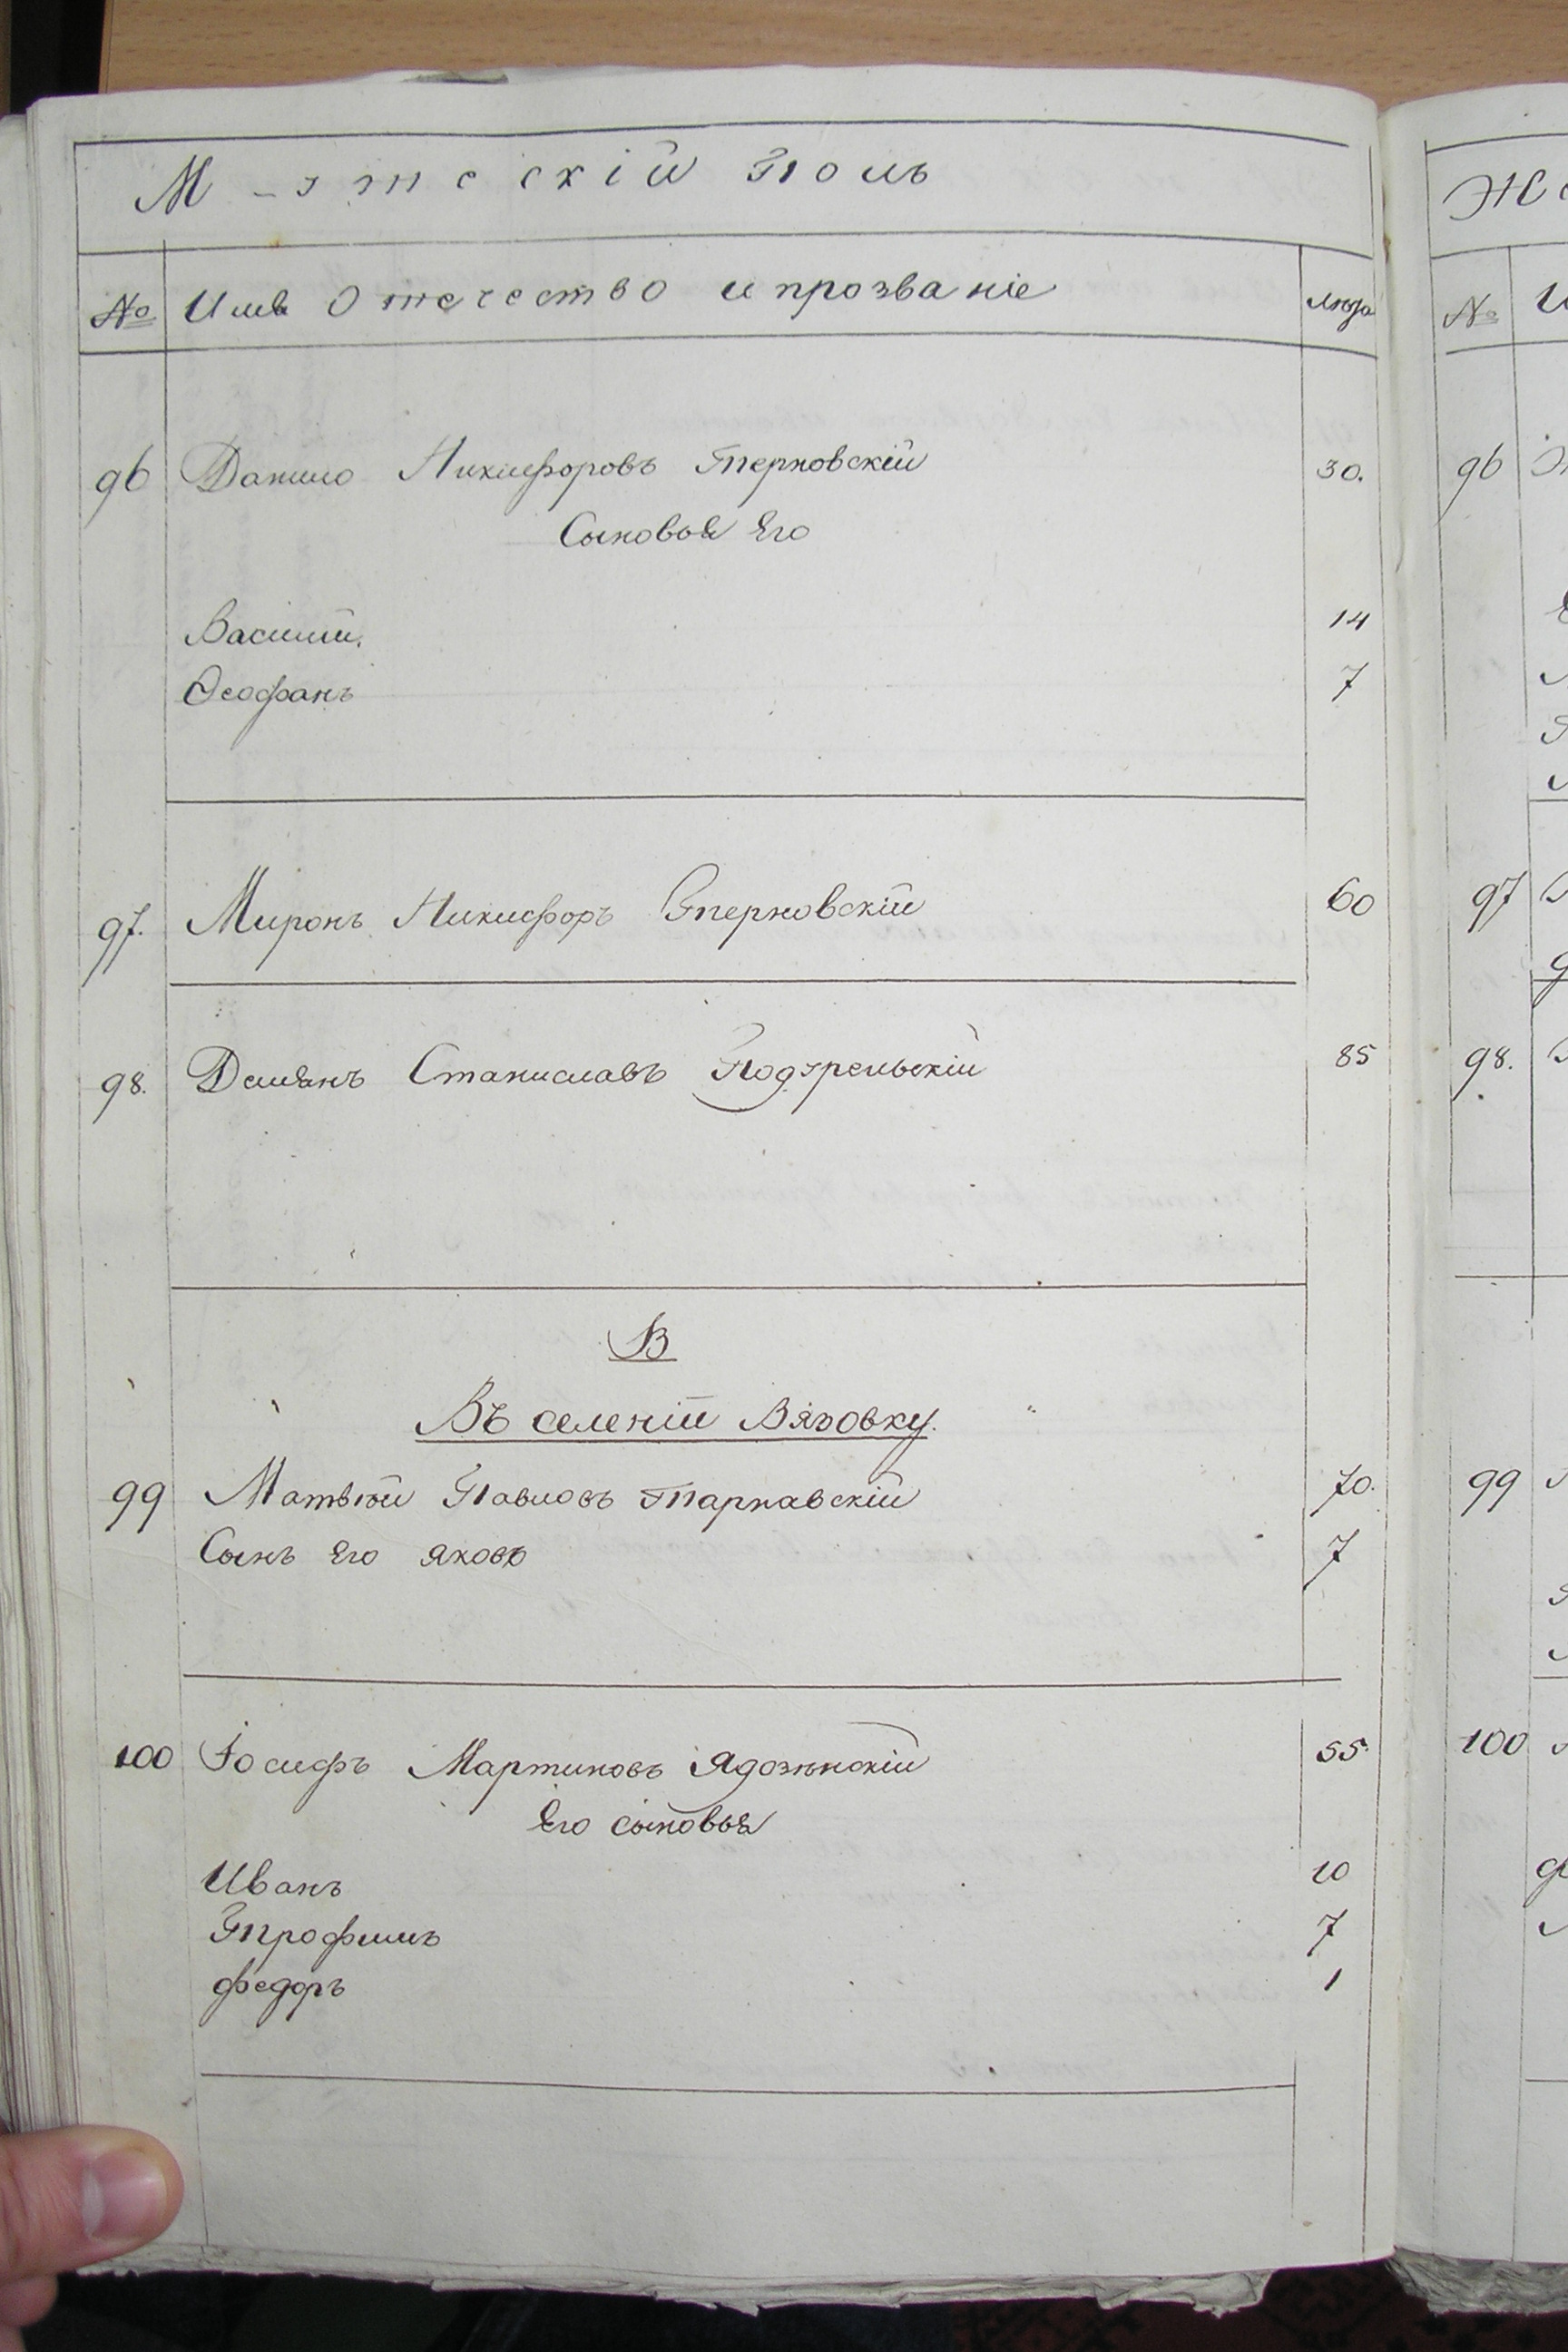 Мужескій Полъ
№ Имя Отечество и прозваніе лѣта
96 Данило Никифоровъ Терновскій 30.
Сыновья Его
Василій. 14
Ѳеофанъ 7
97. Миронъ Никифоръ Терновскій 60
98. Демянъ Станиславъ 85
В
Въ селеніи Вязовку.
99 Матвѣй Павловъ Тарнавскій 70.
Сынъ Его Яковъ 7
100 Іосифъ Мартиновъ 55.
Его сыновья
Иванъ 10
Трофимъ 7
Федоръ 1
№
96
97
98.
99
100